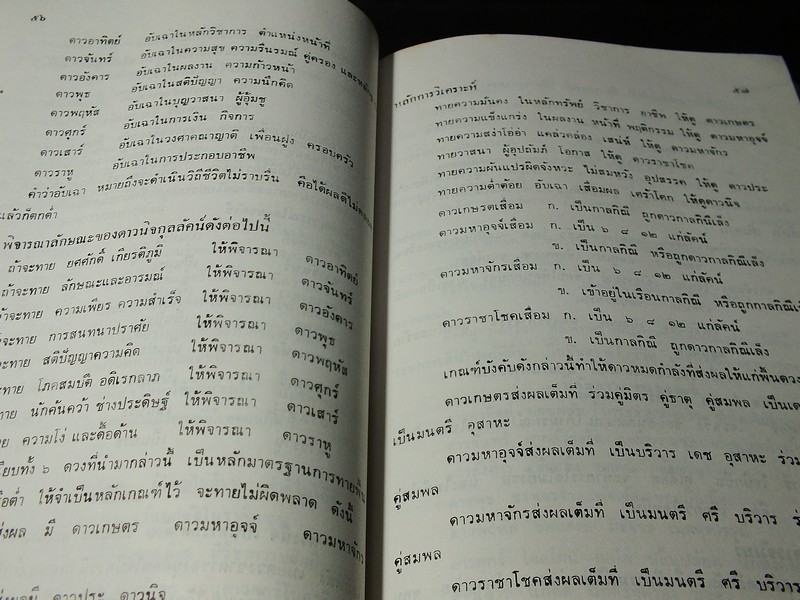 ๕๖
ดาวอาทิตย์ อับเฉาในหลักวิชาการ ตำแหน่งหน้าที่
ดาวจันทร์ อับเฉาในความสุข ความรื่นรมณ์ คู่ครอง และ
ดาวอังคาร อับเฉาในผลงาน ความก้าวหน้า
ดาวพุธ อับเฉาในสติปัญญา ความนึกคิด
ดาวพฤหัส อับเฉาในบุญวาสนา ผู้อุ้มชู
ดาวศุกร์ อับเฉาในการเงิน กิจการ
ดาวเสาร์ อับเฉาในวงศาคณาญาติ เพื่อนฝูง ครอบครัว
ดาวราหู อับเฉาในการประกอบอาชีพ
คำว่าอับเฉา หมายถึงจะดำเนินวิถีชีวิตไม่ราบรื่น คือได้ผลดีไม่
แล้วก็ตกต่ำ
พิจารณาลักษณะของดาวนิจกุลลัคน์ดังต่อไปนี้
ถ้าจะทาย ยศศักดิ์ เกียรติภูมิ ให้พิจารณา ดาวอาทิตย์
ถ้าจะทาย ลักษณะและอารมณ์ ให้พิจารณา ดาวจันทร์
ถ้าจะทาย ความเพียร ความสำเร็จ ให้พิจารณา ดาวอังคาร
จะทาย การสนทนาปราศัย ให้พิจารณา ดาวพุธ
จะทาย สติปัญญาความคิด ให้พิจารณา ดาวพฤหัส
ทาย โภคสมบัติ อดิเรกลาภ ให้พิจารณา ดาวศุกร์
ทาย นักค้นคว้า ช่างประดิษฐ์ ให้พิจารณา ดาวเสาร์
ความโง่ และดื้อด้าน ให้พิจารณา ดาวราหู
ทั้ง ๖ ดวงที่นำมากล่าวนี้ เป็นหลักมาตรฐานการทาย
ต่ำ ให้จำเป็นหลักเกณฑ์ไว้ จะทายไม่ผิดพลาด ดังนี้
ส่งผล มี ดาวเกษตร ดาวมหาอุจจ์ ดาวมหาจักร
ดาวประ ดาวนิจ
หลักการวิเคราะห์ ๕๗
ทายความมั่นคง ในหลักทรัพย์ วิชาการ อาชีพ ให้ดู ดาวเกษตร
ทายความแข็งแกร่ง ในผลงาน หน้าที่ พฤติกรรม ให้ดู ดาวมหาอุจจ์
ทายความสง่าโอ่อ่า แคล่วคล่อง เสน่ห์ ให้ดู ดาวมหาจักร
ทายวาสนา ผู้อุปถัมภ์ โอกาส ให้ดู ดาวราชาโชค
ทายความผันแปรผิดจังหวะ ไม่สมหวัง อุปสรรค ให้ดู ดาวประ
ทายความต่ำต้อย อับเฉา เสื่อมผล เศร้าโศก ให้ดูดาวนิจ
ดาวเกษตรเสื่อม ก. เป็นกาลกิณี ถูกดาวกาลกิณีเล็ง
ดาวมหาอุจจ์เสื่อม ก. เป็น ๖ ๘ ๑๒ แก่ลัคน์
ข. เป็นกาลกิณี หรือถูกดาวกาลกิณีเล็ง
ดาวมหาจักรเสื่อม ก. เป็น ๖ ๘ ๑๒ แก่ลัคน์
ข. เข้าอยู่ในเรือนกาลกิณี หรือถูกกาลกิณี
ดาวราชาโชคเสื่อม ก. เป็น ๖ ๘ ๑๒ แก่ลัคน์
ข. เป็นกาลกิณี ถูกดาวกาลกิณีเล็ง
เกณฑ์บังคับดังกล่าวนี้ทำให้ดาวหมดกำลังที่ส่งผลให้แก่พื้นดวง
ดาวเกษตรส่งผลเต็มที่ ร่วมคู่มิตร คู่ธาตุ คู่สมพล เป็น
เป็นมนตรี อุสาหะ
ดาวมหาอุจจ์ส่งผลเต็มที่ เป็นบริวาร เดช อุสาหะ ร่วม
คู่สมพล
ดาวมหาจักรส่งผลเต็มที่ เป็นมนตรี ศรี บริวาร
คู่สมพล
ดาวราชาโชคส่งผลเต็มที่ เป็นมนตรี ศรี บริวาร